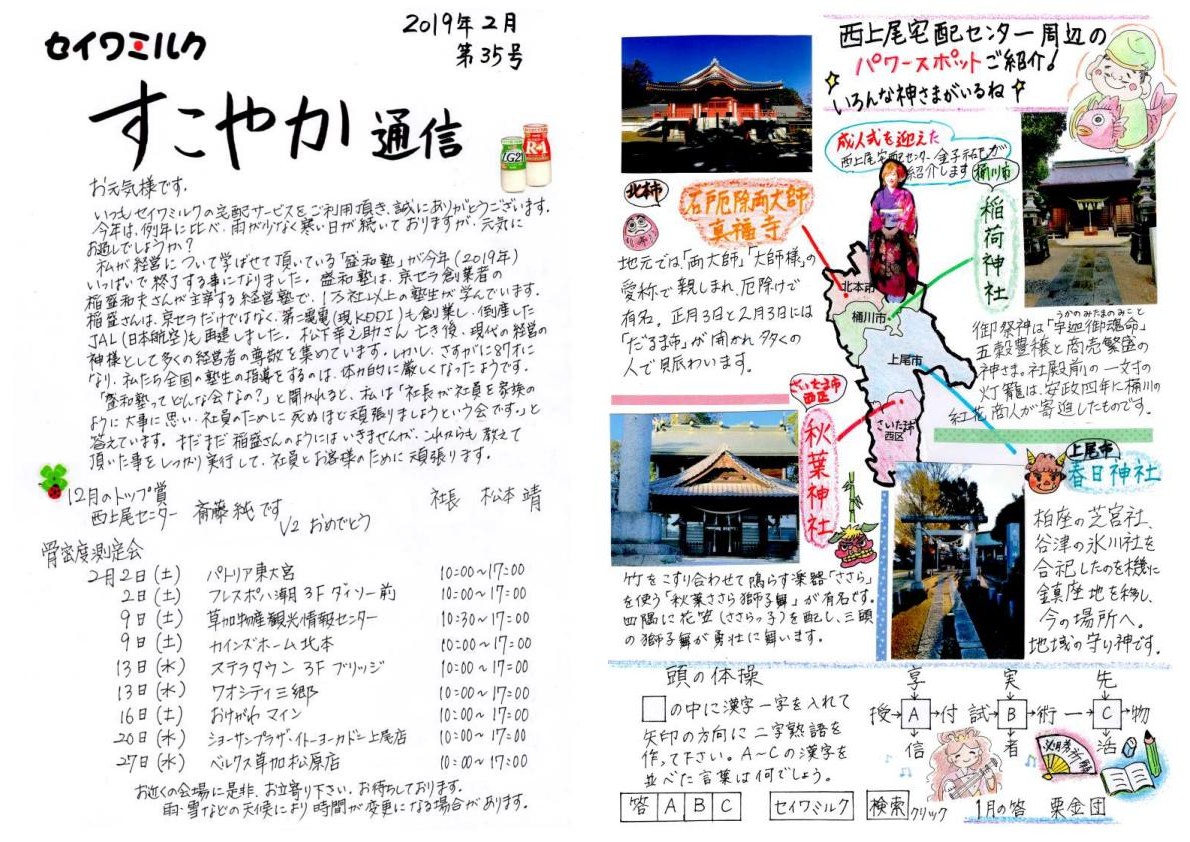 セイワミルク
2019年2月
第35号
すこやか通信
LG21
R-1
お元気様です。
いつもセイワミルクの宅配サービスをご利用頂き、誠にありがとうございます。
今年は、例年に比べ、雨が少なく寒い日が続いておりますが、元気に
お過しでしょうか？
私が経営について学ばせて頂いている「盛和塾」が今年（2019年）
いっぱいで終了する事になりました。盛和塾は、京セラ創業者の
稲盛和夫さんが主宰する経営塾で、1万社以上の塾生が学んでいます。
稲盛さんは、京セラだけではなく、第二電電（現KDDI）も創業し、倒産した
JAL（日本航空）も再建しました。松下幸之助さん亡き後、現代の経営の
神様として多くの経営者の尊敬を集めています。しかし、さすがに87才に
なり、私たち全国の塾生の指導をするのは、体力的に厳しくなったようです。
「盛和塾ってどんな会なの？」と聞かれると、私は「社長が社員を家族の
ように大事に思い、社員のために死ぬほど頑張りましょうという会です。」と
答えています。まだまだ稲盛さんのようにはいきませんが、これからも教えて
頂いた事をしっかり実行して、社員とお客様のために頑張ります。
社長 松本 靖
12月のトップ賞
西上尾センター 斎藤純です
V2 おめでとう
骨密度測定会
2月2日（土） パトリア東大宮 10:00～17:00
2日（土） フレスポ八潮 3F ダイソー前 10:00～17:00
9日（土） 草加物産観光情報センター 10:30～17:00
9日（土） カインズホーム北本 10:00～17:00
13日（水） ステラタウン 3F ブリッジ 10:00～17:00
13日（水） ワオシティ三郷 10:00～17:00
16日（土） おけがわマイン 10:00～17:00
20日（水） ショーサンプラザ・イトーヨーカドー上尾店 10:00～17:00
27日（水） ベルクス草加松原店 10:00～17:00
お近くの会場に是非、お立寄り下さい。お待ちしております。
雨・雪などの天候により時間が変更になる場合があります。
西上尾宅配センター周辺の
パワースポットご紹介！
いろんな神さまがいるね
成人式を迎えた
西上尾宅配センター金子和もが
紹介します
北本市
石戸厄除両大師
真福寺
地元では「両大師」「大師様」の
愛称で親しまれ、厄除けで
有名。正月3日と2月3日には
「だるま市」が開かれ多くの
人で賑わいます。
桶川市
稲荷神社
うかのみたまのみこと
御祭神は「宇迦御魂命」
五穀豊穣と商売繁盛の
神さま。社殿前の一丈寸の
灯籠は、安政四年に桶川の
紅花商人が寄進したものです。
北本市
桶川市
上尾市
さいたま市
西区
さいたま市
西区
秋葉神社
竹をこすり合わせて鳴らす楽器「ささら」
を使う「秋葉ささら獅子舞」が有名です。
四隅に花笠（ささらっ子）を配し、三頭
の獅子舞が勇壮に舞います。
上尾市
春日神社
柏座の芝宮社、
谷津の氷川社を
合祀したのを機に
鎮座地を移し、
今の場所へ。
地域の守り神です。
頭の体操
□の中に漢字一字を入れて
矢印の方向に二字熟語を
作って下さい。A～Cの漢字を
並べた言葉は何でしょう。
答 A B C
セイワミルク 検索 クリック
享 実 先
授→A→付 試→B→術 一→C→物
信 者 活
1月の答 栗金団